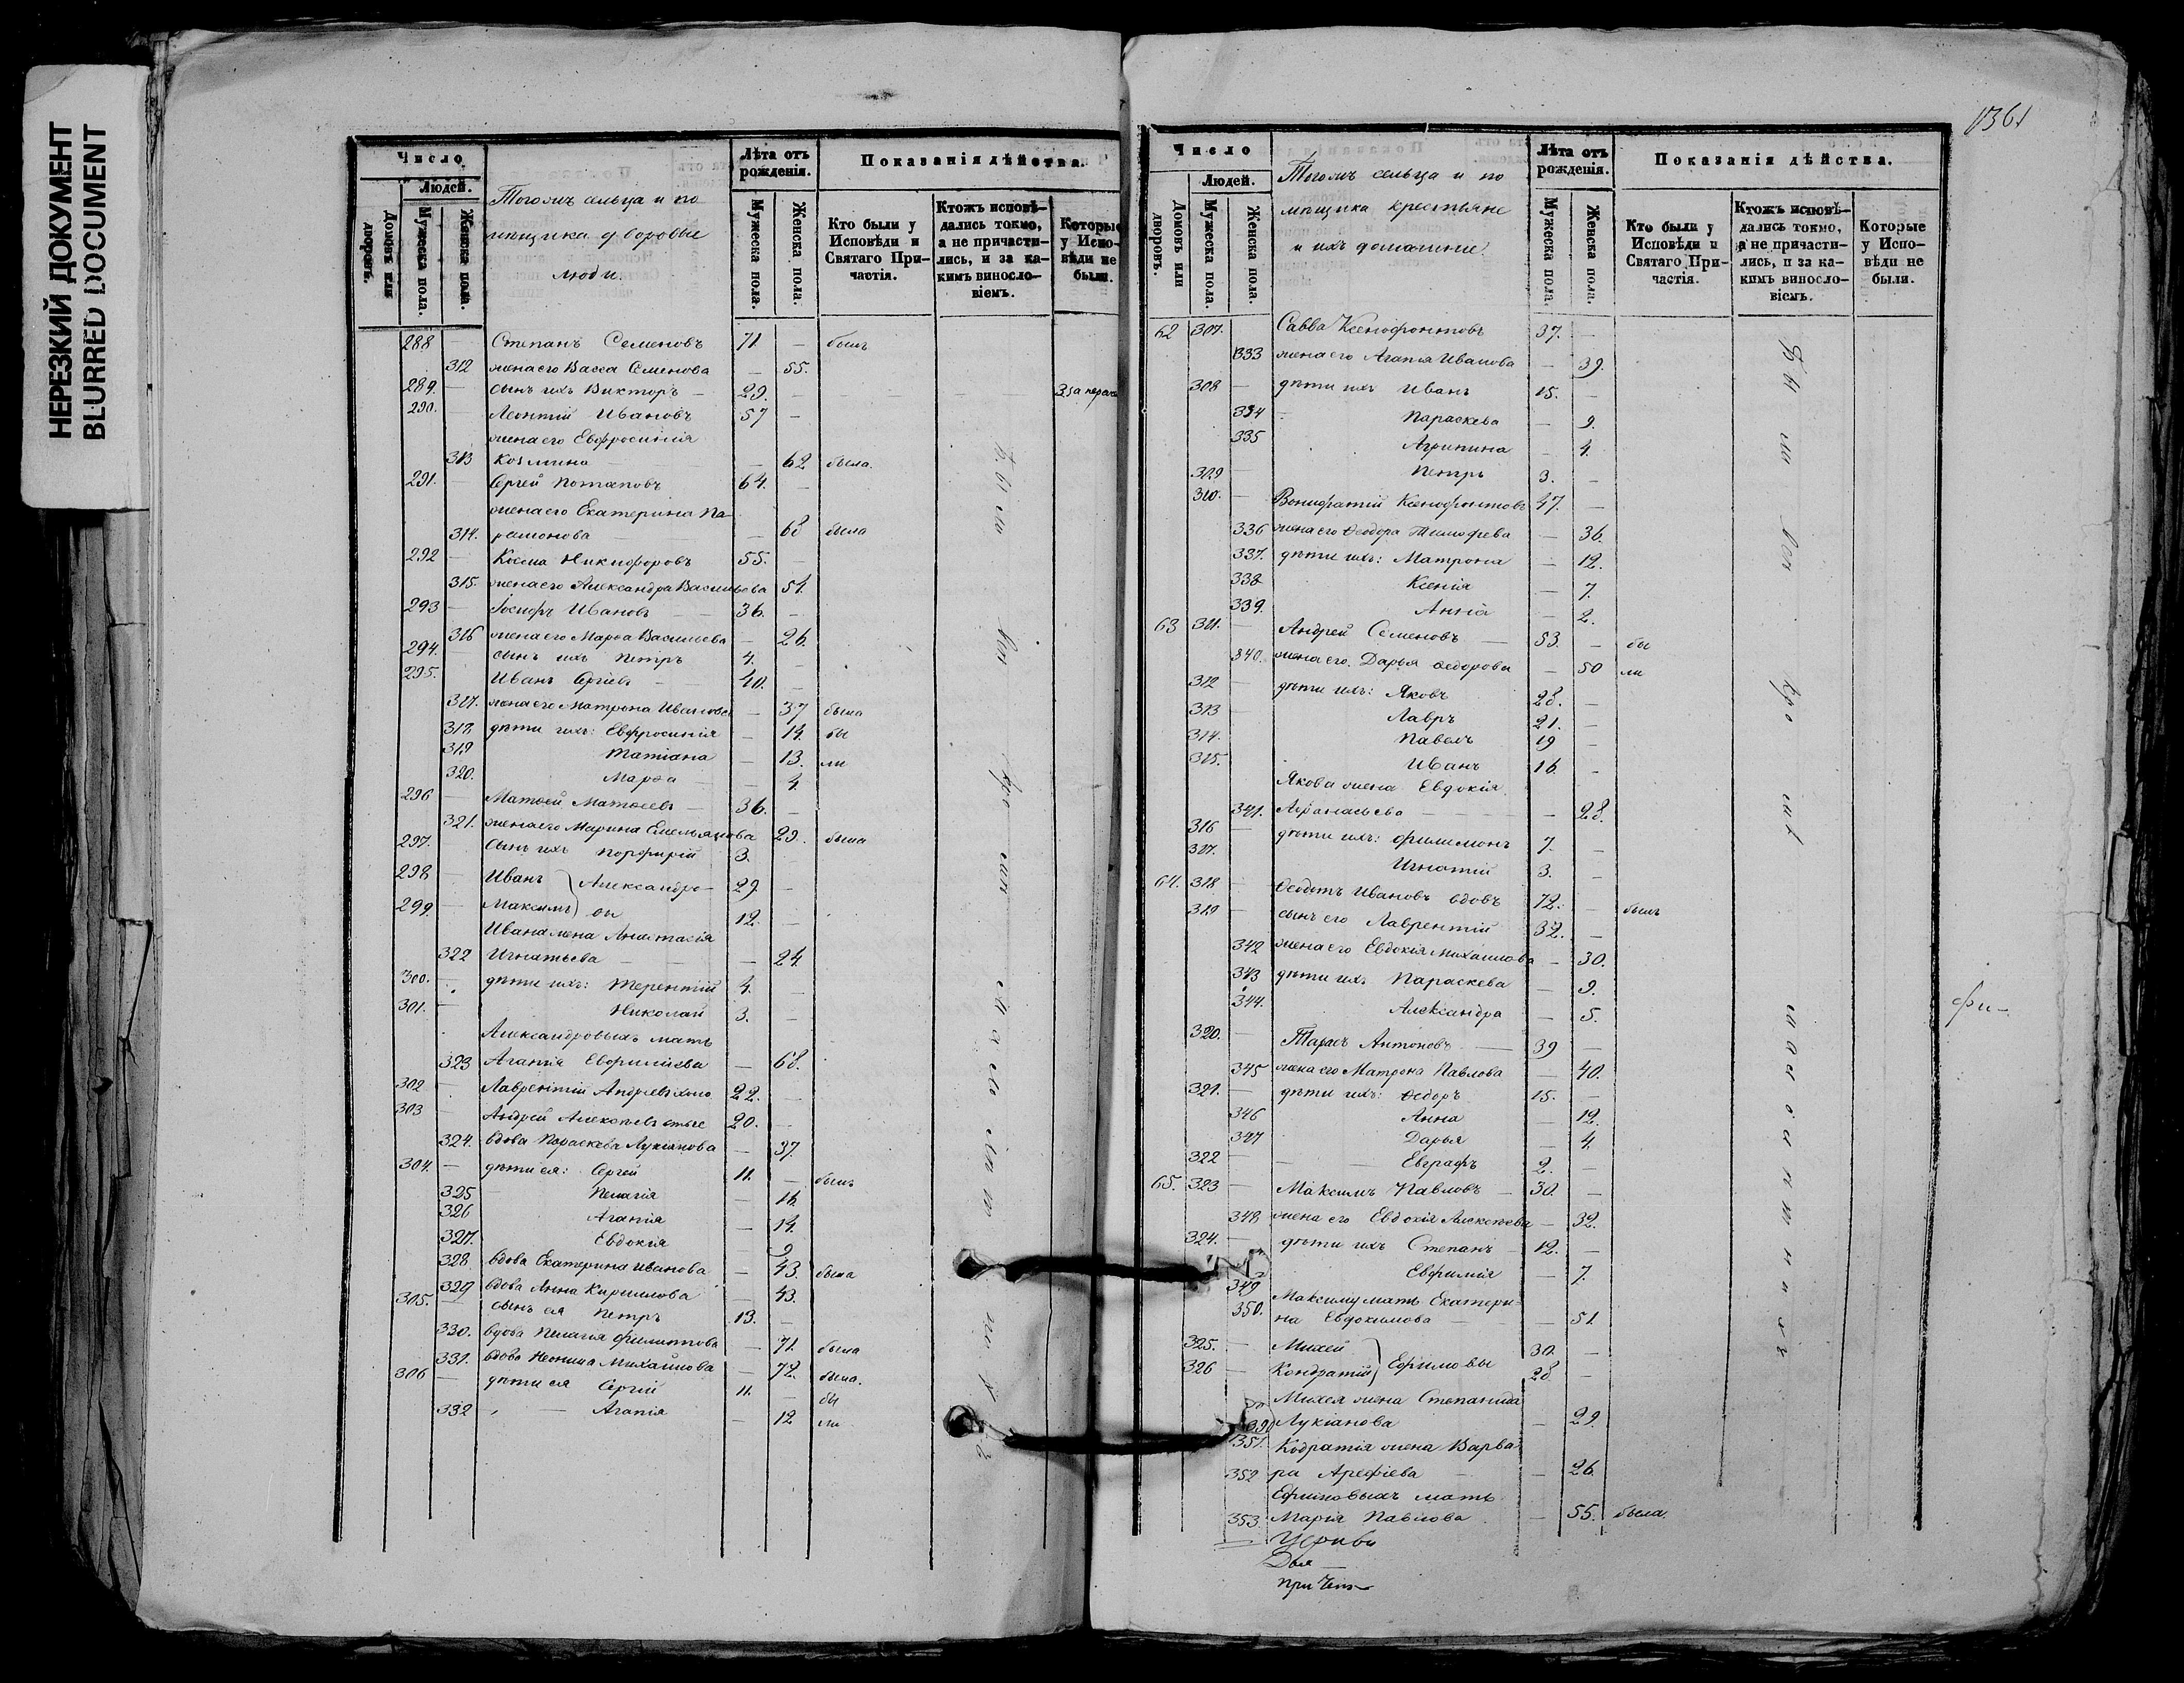 НЕРЕЗКИЙ ДОКУМЕНТ
BLURRED DOCUMENT
Число
Людей.
Домовъ или дворовъ.
Мужеска пола.
Женска пола.
Тогожъ сельца и по
мѣщика дворовые
люди.
Лѣта отъ рожденія.
Мужеска пола.
Женска пола.
Показанія дѣйства.
Кто были у Исповѣди и Святаго При-частія.
Ктожъ исповѣ-дались токмо, а не причасти-лись, и за ка-кимъ винословіемъ.
Которые у Испо-вѣди не были.
288 — Степанъ Семеновъ 71 — былъ
312 жена его Васса Семенова — 55.
289. — сынъ ихъ Викторъ — 29. —
290. — Леонтій Ивановъ 57 —
жена его Евфросинія
313 Козмина — 62 была.
291. — Сергей Потаповъ 64. —
жена его Екатерина Па-
314. рамонова — — 68 была
292 — Косма Никифоровъ 55. —
315. жена его Александра Васильева 51.
293 — Іосифъ Ивановъ — 36. —
316 жена его Марѳа Васильева — 26.
294. сынъ ихъ Петръ 4. —
295. Иванъ Сергіевъ — 40. —
317. жена его Матрона Иванова — 37 была
318 дѣти ихъ: Евфросинія — 14. бы
319 Татіана — 13. ли
320. Марѳа — 4.
296 — Матѳей Матѳеевъ — 36. —
321. жена его Марина Емельянова 29. была
297. сынъ ихъ Порфирій 3.
298 — Иванъ } Александро- 29. —
299. — Максимъ } вы 12. —
Ивана жена Анастасія
322 Игнатьева — — — 24.
300. дѣти ихъ: Терентій 4. —
301. — Николай 3. —
Александровыхъ мать
323 Агапія Евфиміева — 68.
302 Лаврентій Андреевъ холо 22. —
303 — Андрей Алексѣевъ стые 20. —
324. вдова Параскева Лукіанова — 37.
304. — дѣти ея: Сергей 11. — былъ
325 Пелагія — 16.
326 Агапія — 14.
327. Евдокія 9
328. вдова Екатерина Иванова — 43. была
329 вдова Анна Кириллова — 43.
305. — сынъ ея Петръ 13. —
330. вдова Пелагія Филиппова — 71. была
331. вдова Неонила Михайлова — 72. была.
306 — дѣти ея Сергій 11. — бы
332 — Агапія — 12 ли
1361
Число
Людей.
Домовъ или дворовъ.
Мужеска пола.
Женска пола.
Тогожъ сельца и по
мѣщика крестьяне
и ихъ домашніе
Лѣта отъ рожденія.
Мужеска пола.
Женска пола.
Показанія дѣйства.
Кто были у Исповѣди и Святаго При-частія.
Ктожъ исповѣ-дались токмо, а не причасти-лись, и за ка-кимъ винословіемъ.
Которые у Испо-вѣди не были.
62 307. Савва Ксенофонтовъ 37. —
333 жена его Агапія Иванова — 39.
308 — дѣти ихъ Иванъ 15. —
334 Параскева — 9.
335 Агрипина — 4.
309 — Петръ 3. —
310. — Вонифатій Ксенофонтовъ 47. —
336 жена его Ѳеодора Тимофеева — 36.
337. дѣти ихъ: Матрона — 12.
338 Ксенія — 7.
339. Анна — 2.
63 311. — Андрей Семеновъ — 53. — бы
340. жена его Дарья Ѳедорова — 50 ли
312 — дѣти ихъ: Яковъ 28. —
313 — Лавръ 21. —
314. Павелъ 19 —
315. Иванъ 16. —
Якова жена Евдокія
341. Афанасьева — — 28.
316 — дѣти ихъ: Филимонъ 7. —
317. Игнатій 3. —
64. 318 — Ѳеодотъ Ивановъ вдовъ 72. — былъ
319 — сынъ его Лаврентій 32. —
342 жена его Евдокія Михаилова — 30.
343 дѣти ихъ Параскева — 9.
344. Александра — 5.
320. — Тарасъ Антоновъ — 39 —
345 жена его Матрона Павлова — 40.
321. — дѣти ихъ: Ѳедоръ 15. —
346 Анна — 12.
347 Дарья — 4.
322 — Евграфъ 2. —
65. 323 — Максимъ Павловъ — 30. —
348 жена его Евдокія Алексѣева — 32.
324. — дѣти ихъ Степанъ 12. —
349 Евфимія — 7.
Максиму мать Екатери-
350. на Евдокимова — — 51.
325. — Михей } 30. —
326 — Кондратій } Ефимовы 28 —
Михея жена Степанида
Лукіанова — 29.
351. Кодратія жена Варва
352 ра Арефіева — — 26.
Ефимовыхъ мать
353. Марія Павлова — 55. была.
фи-